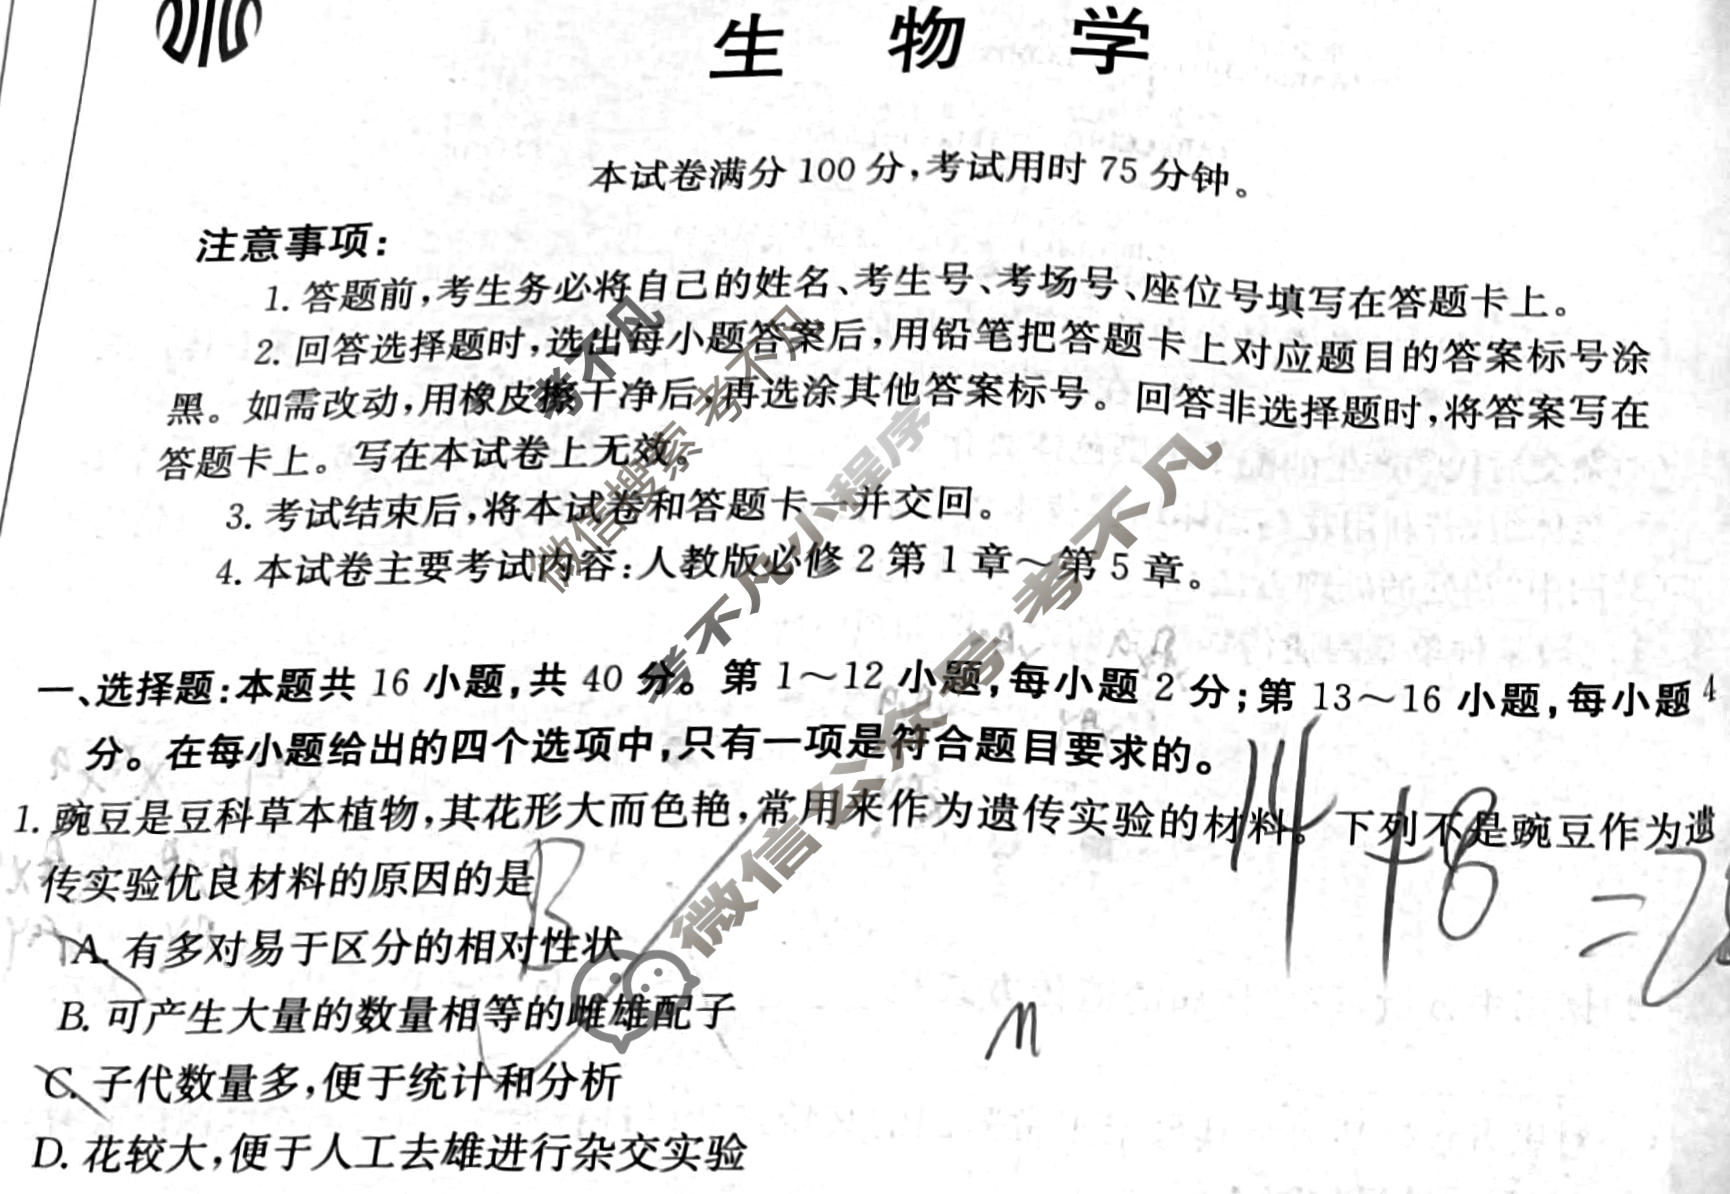 生 物 学
本试卷满分 100 分,考试用时 75 分钟。
注意事项:
1. 答题前,考生务必将自己的姓名、考生号、考场号、座位号填写在答题卡上。
2. 回答选择题时,选出每小题答案后,用铅笔把答题卡上对应题目的答案标号涂
黑。如需改动,用橡皮擦干净后,再选涂其他答案标号。回答非选择题时,将答案写在
答题卡上。写在本试卷上无效。
3. 考试结束后,将本试卷和答题卡一并交回。
4. 本试卷主要考试内容:人教版必修 2 第 1 章~第 5 章。
一、选择题:本题共 16 小题,共 40 分。第 1~12 小题,每小题 2 分;第 13~16 小题,每小题 4
分。在每小题给出的四个选项中,只有一项是符合题目要求的。
1. 豌豆是豆科草本植物,其花形大而色艳,常用来作为遗传实验的材料。下列不是豌豆作为遗
传实验优良材料的原因的是
B
14+8=2
A. 有多对易于区分的相对性状
B. 可产生大量的数量相等的雌雄配子
C. 子代数量多,便于统计和分析
D. 花较大,便于人工去雄进行杂交实验
考不凡
微信搜索 考不凡
考不凡小程序
微信公众号 考不凡